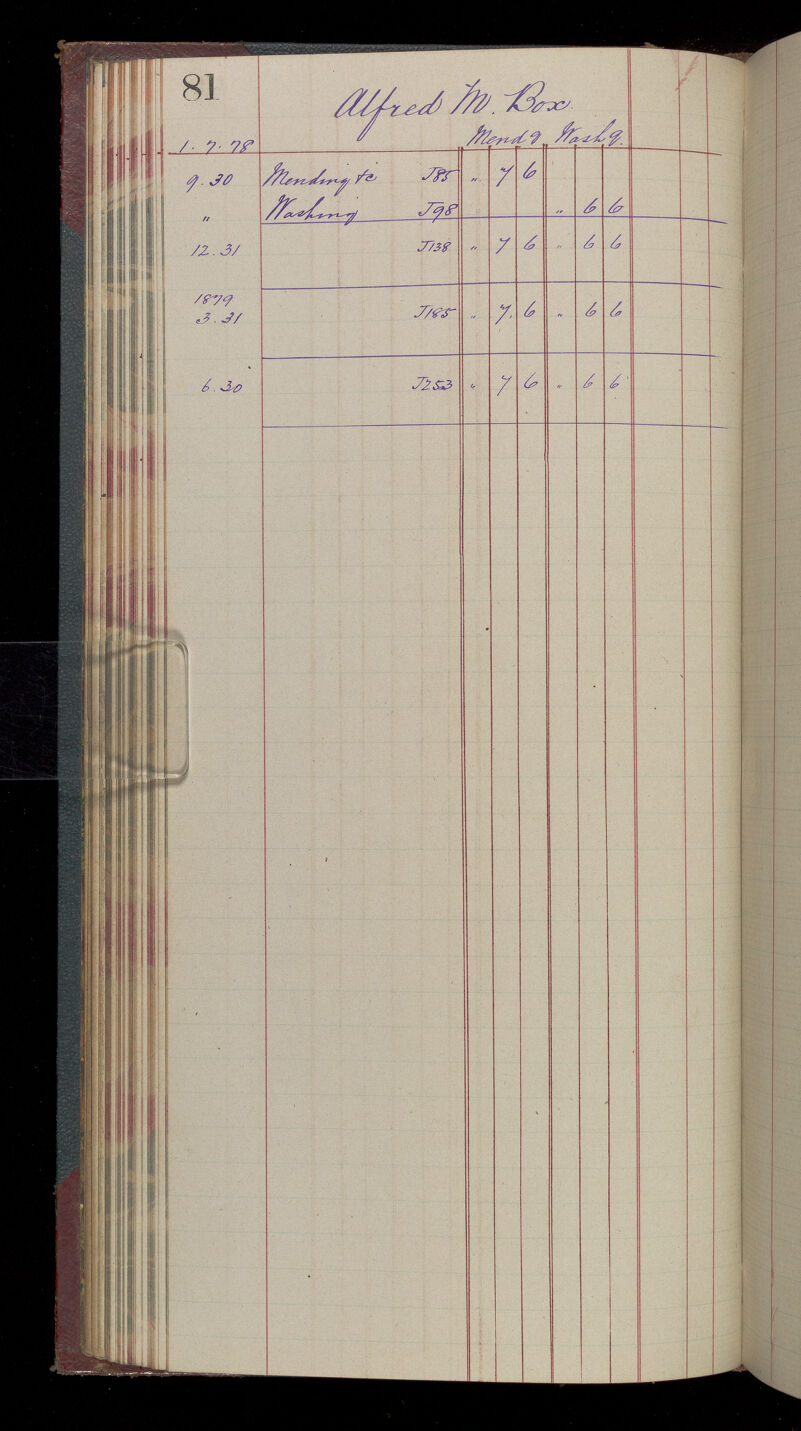 81
Alfred M. Box.
1. 7. 78 Mendg. Washg.
9. 30 Mending &c J85 " 7 6
" Washing J98 " 6 6
12. 31 J138 " 7 6 " 6 6
1879
3. 31 J185 " 7. 6 " 6 6
6. 30 J253 " 7 6 " 6 6